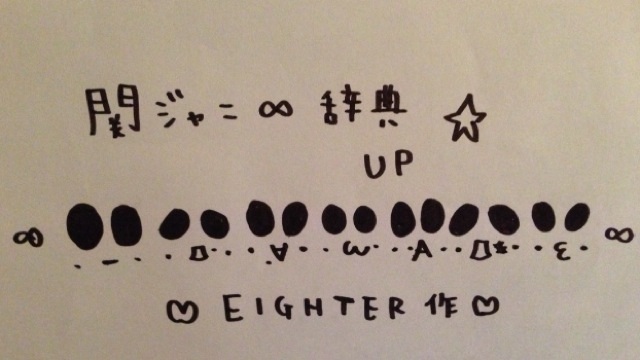 関ジャニ∞辞典☆
UP
∞ ∞
♡ EIGHTER 作 ♡